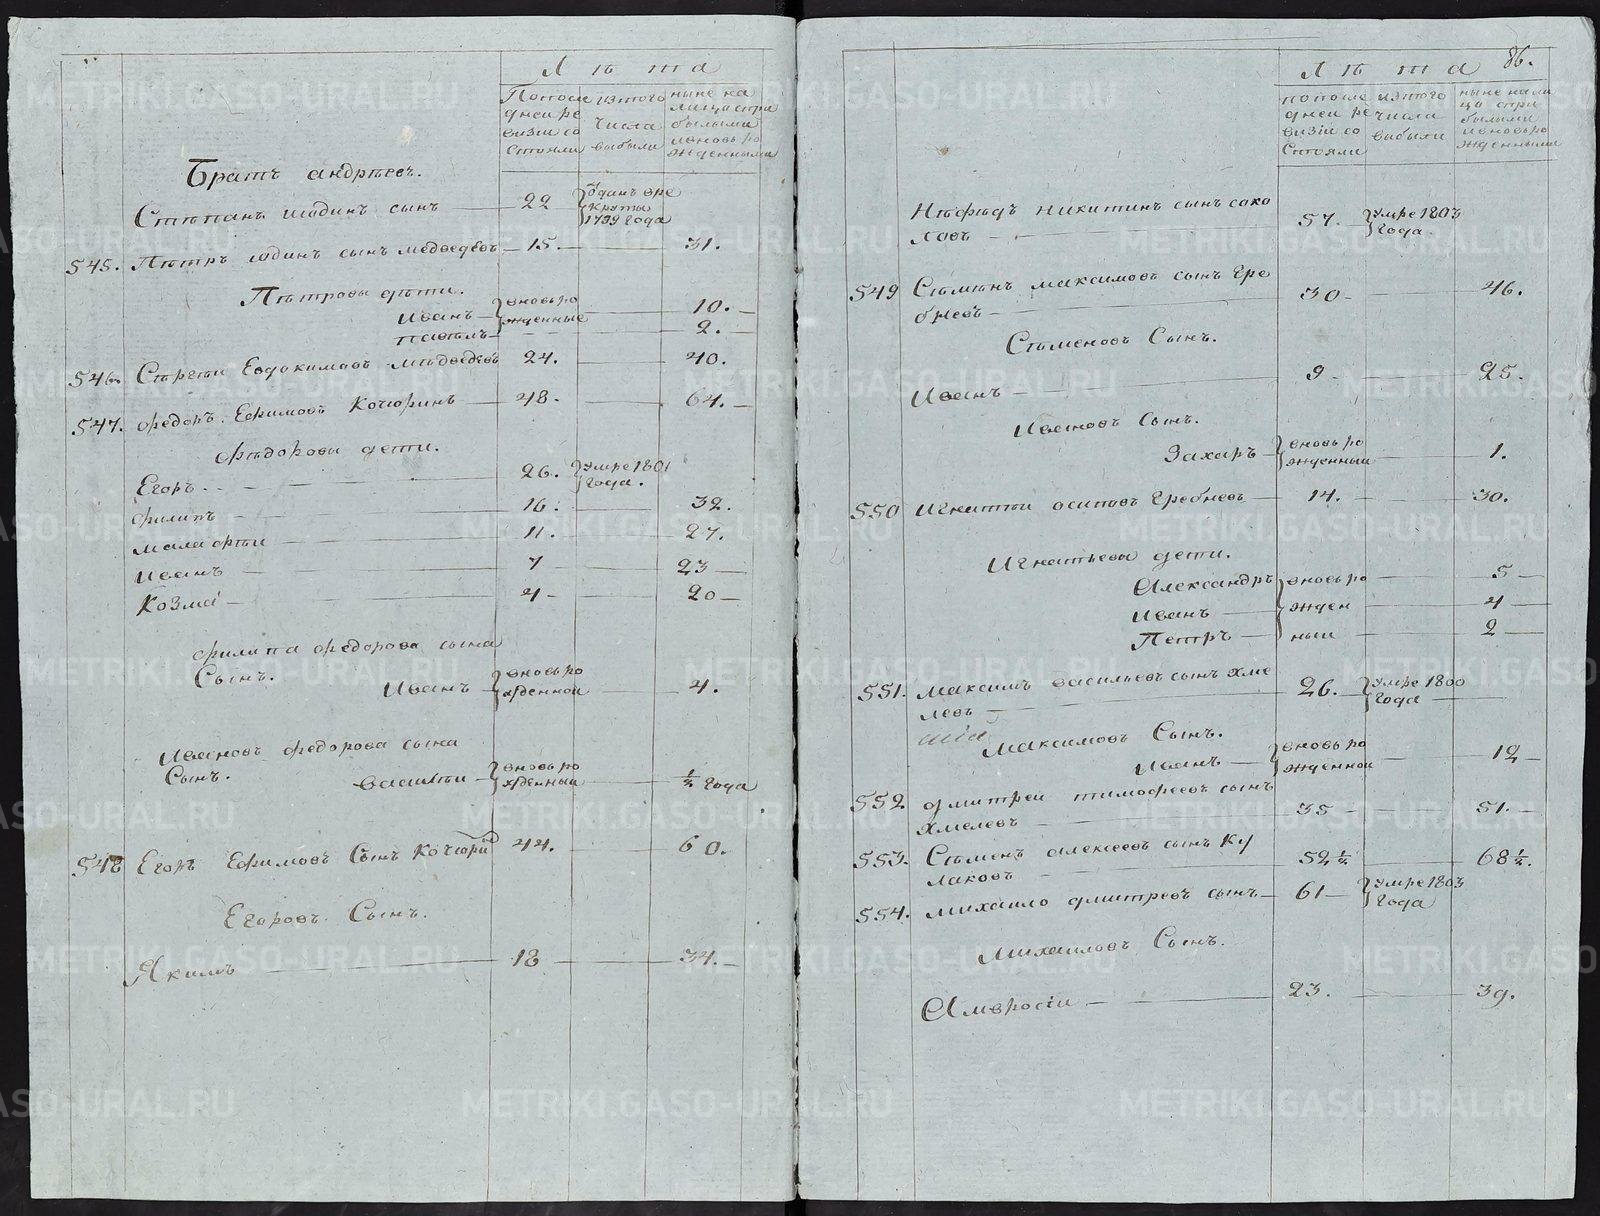 Лѣта
По после
дней ре
визіи со
стояли
изтого
числа
выбыли
ныне на
лицо спри
былыми
ивновь ро
жденными
Братъ андрѣевъ.
Стѣпанъ июдинъ сынъ 22 отданъ вре
круты
1799 года
545. Пѣтръ июдинъ сынъ медведевъ 15. 31.
Пѣтровы дѣти.
Иванъ вновь ро 10.
павелъ жденные 2.
546. Сѣргѣи Евдокимовъ мѣдведевъ 24. 40.
547. Федоръ Ефимовъ Кочюринъ 48. 64.
Фѣдоровы дети.
Егоръ 26. умре 1801
года.
филипъ 16. 32.
малафѣи 11. 27.
иванъ 7 23
Козма 4 20
филипа федорова сына
Сынъ.
Иванъ вновь ро
жденной 4.
Ивановъ федорова сына
Сынъ.
василѣи вновь ро
жденный ½ года
548 Егоръ Ефимовъ Сынъ Кочюринъ 44. 60.
Егоровъ Сынъ.
Якимъ 18 34.
86.
Лѣта
по после
дней ре
визіи со
стояли
изтого
числа
выбыли
ныне нали
цо спри
былыми
ивновь ро
жденными
Нѣфѣдъ никитинъ сынъ соко
ловъ 57. умре 1803
года.
549 Сѣмѣнъ максимовъ сынъ гре
бневъ 30 46.
Сѣменовъ Сынъ.
Иванъ 9 25.
Ивановъ Сынъ.
Захаръ вновь ро
жденный 1.
550 Игнатѣи осиповъ гребневъ 14. 30.
Игнатьевы дети.
Александръ вновь ро 5
Иванъ жден 4
Петръ ныи 2
551. Максимъ васильевъ сынъ хме
левъ 26. умре 1800
года
Максимовъ Сынъ.
Иванъ вновь ро
жденной 12
552 дмитрей тимофеевъ сынъ
хмелевъ 35 51.
553. Сѣменъ алексеевъ сынъ Ку
лаковъ 52½ 68½.
554. михаило дмитревъ сынъ 61 умре 1803
года
Михаиловъ Сынъ.
Амвросіи 23. 39.
METRIKI.GASO-URAL.RU